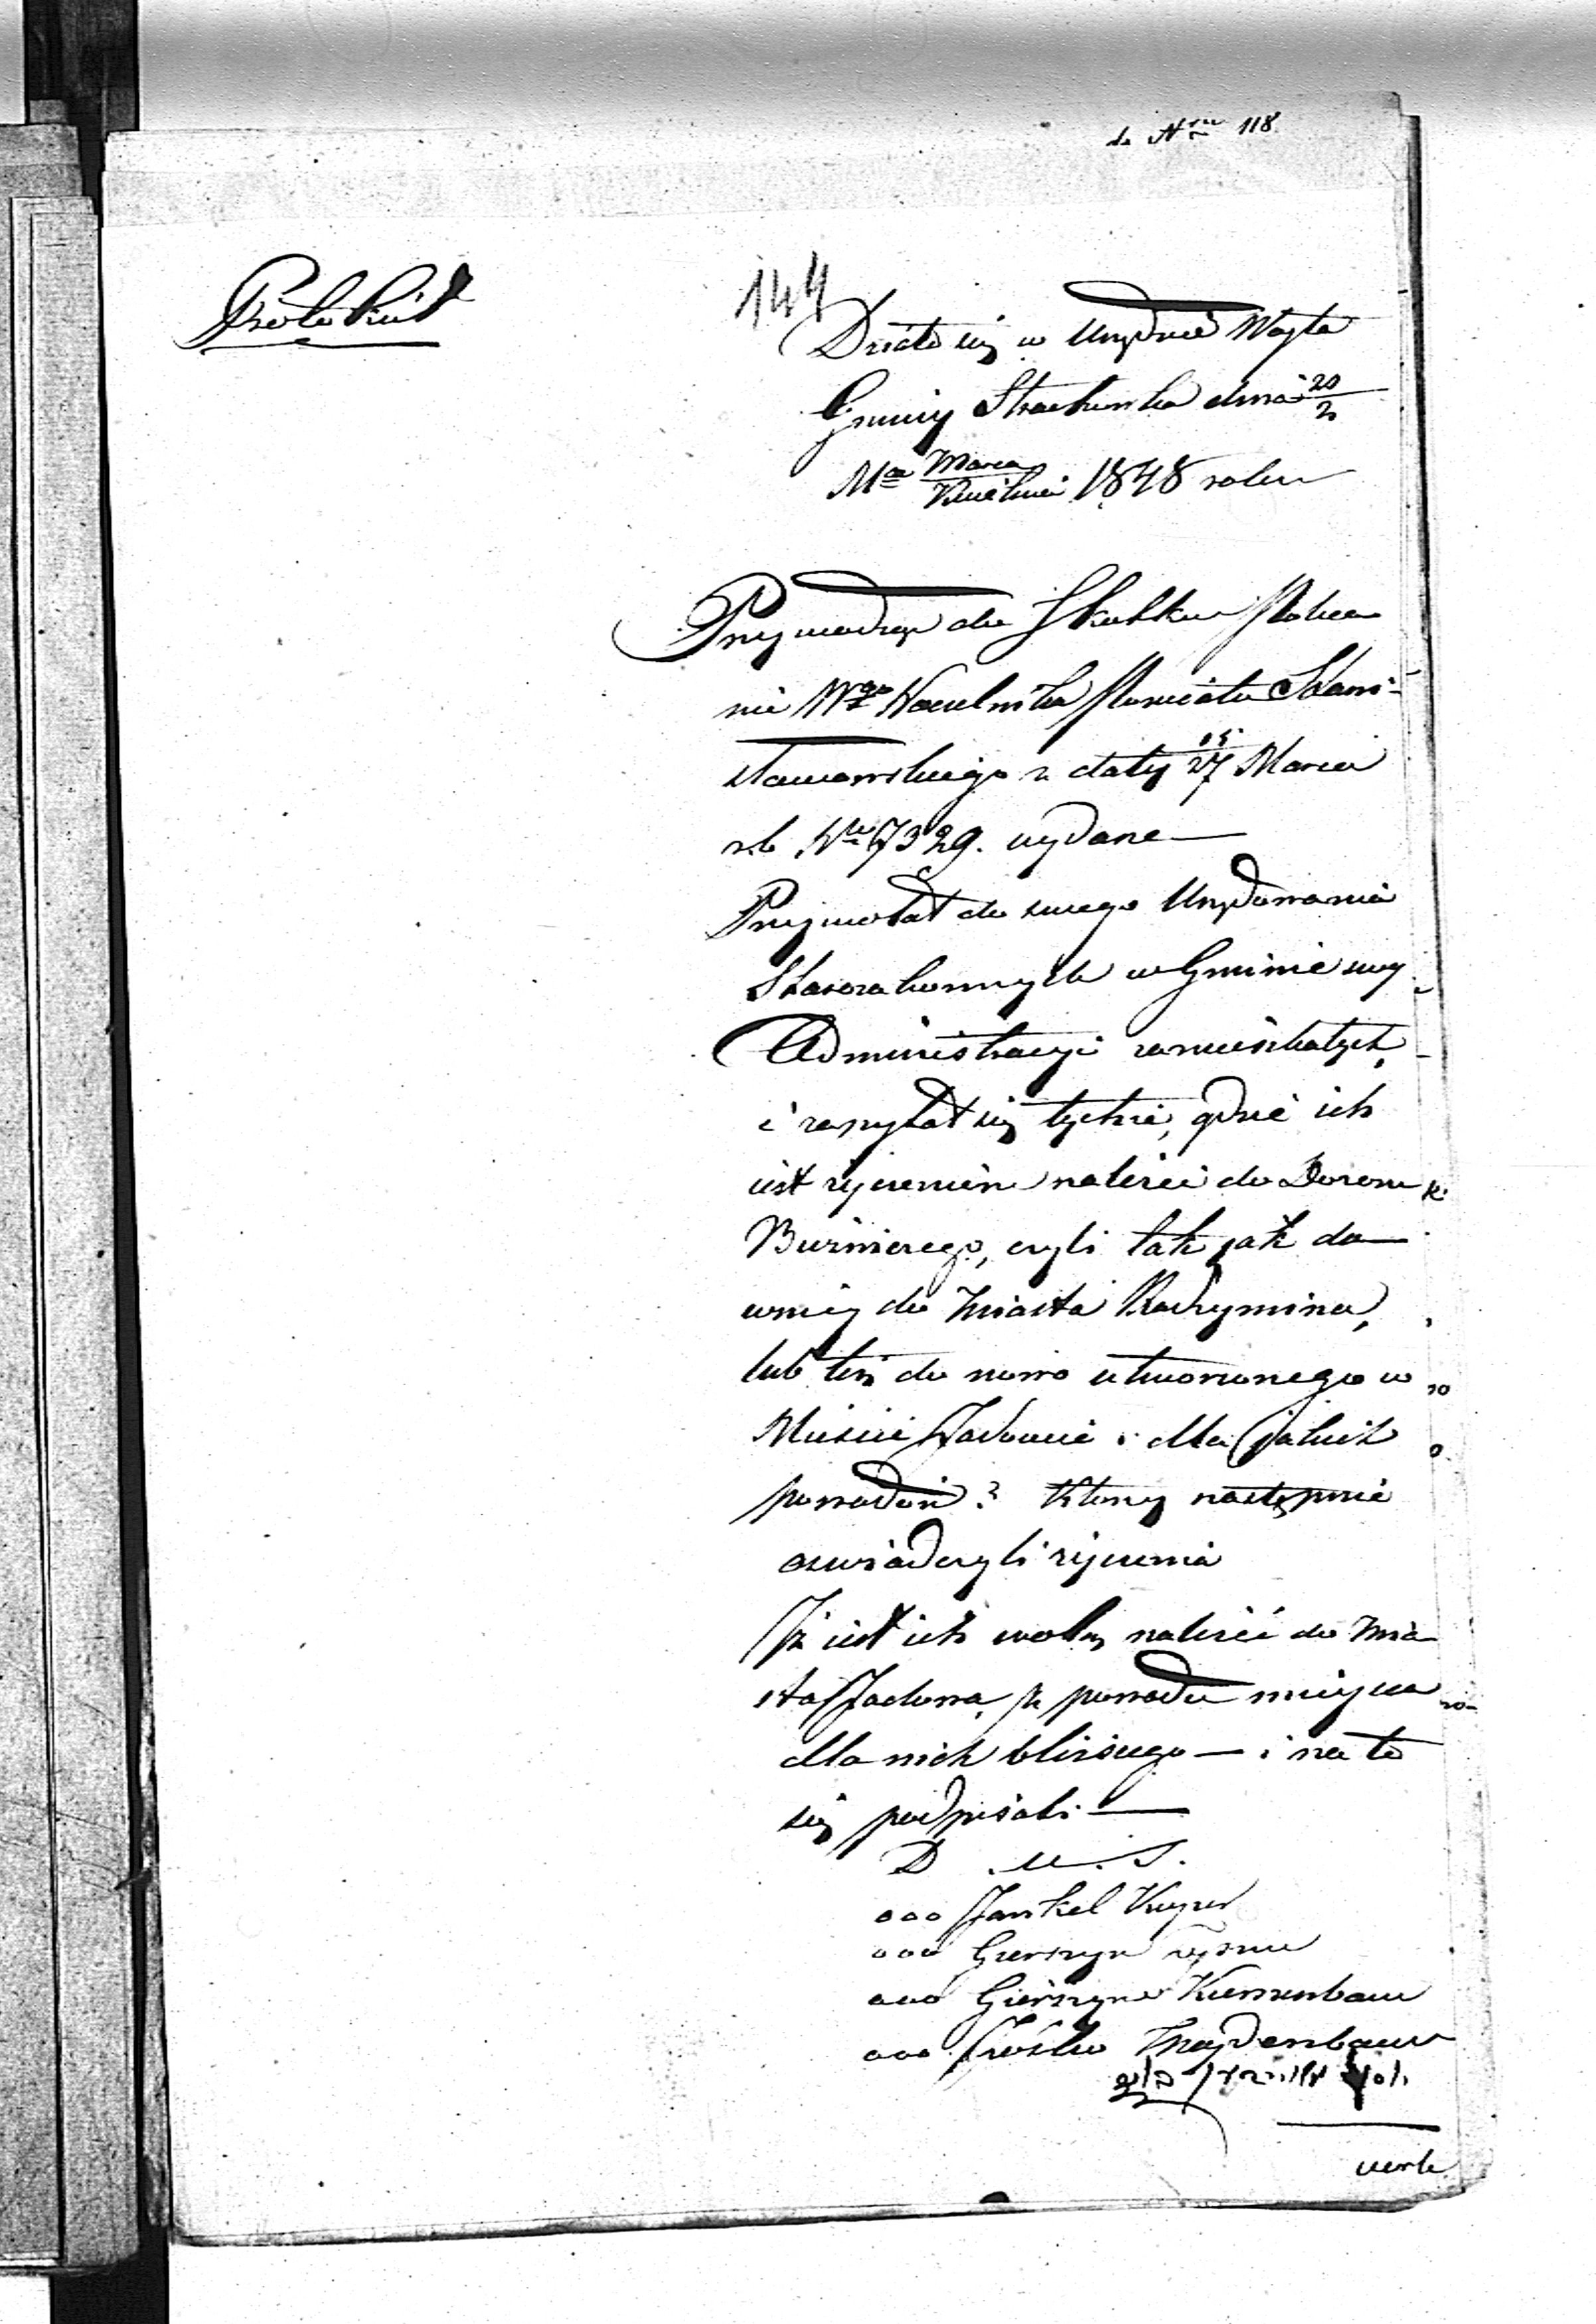 do Nru 118
Protokuł
144
Działo się w Urzędzie Wojta
Gminy Strachowka dnia 20/2
Mca Marca/Kwietnia 1848 roku
Przywodząc do Skutku Polece
nie Wgo Naczelnika Powiatu Stani-
sławowskiego z daty 15/27 Marca
r.b. Nr 7329. wydane —
Przywołał do swego Urzędowania
Starozakonnych w Gminie swej
Administracyi zamieszkałych,
i zapytał się tychże, gdzie ich
iest życzeniem należeć do Dozoru
Bużniczego, czyli tak jak da
wniej do Miasta Radzymina,
lub też do nowo utworzonego w
Mieście Jadowie i dla jakich
powodów? Ktorzy następnie
oswiadczyli życzenia
Iż iest ich wolą należeć do Mia
sta Jadowa, z powodu mieysca
dla nich bliższego — i na to
się podpisali —
D. u. S.
ooo Jankel
ooo Gierszyn
ooo Gierszyn
ooo Josko Majdenbaum
verte